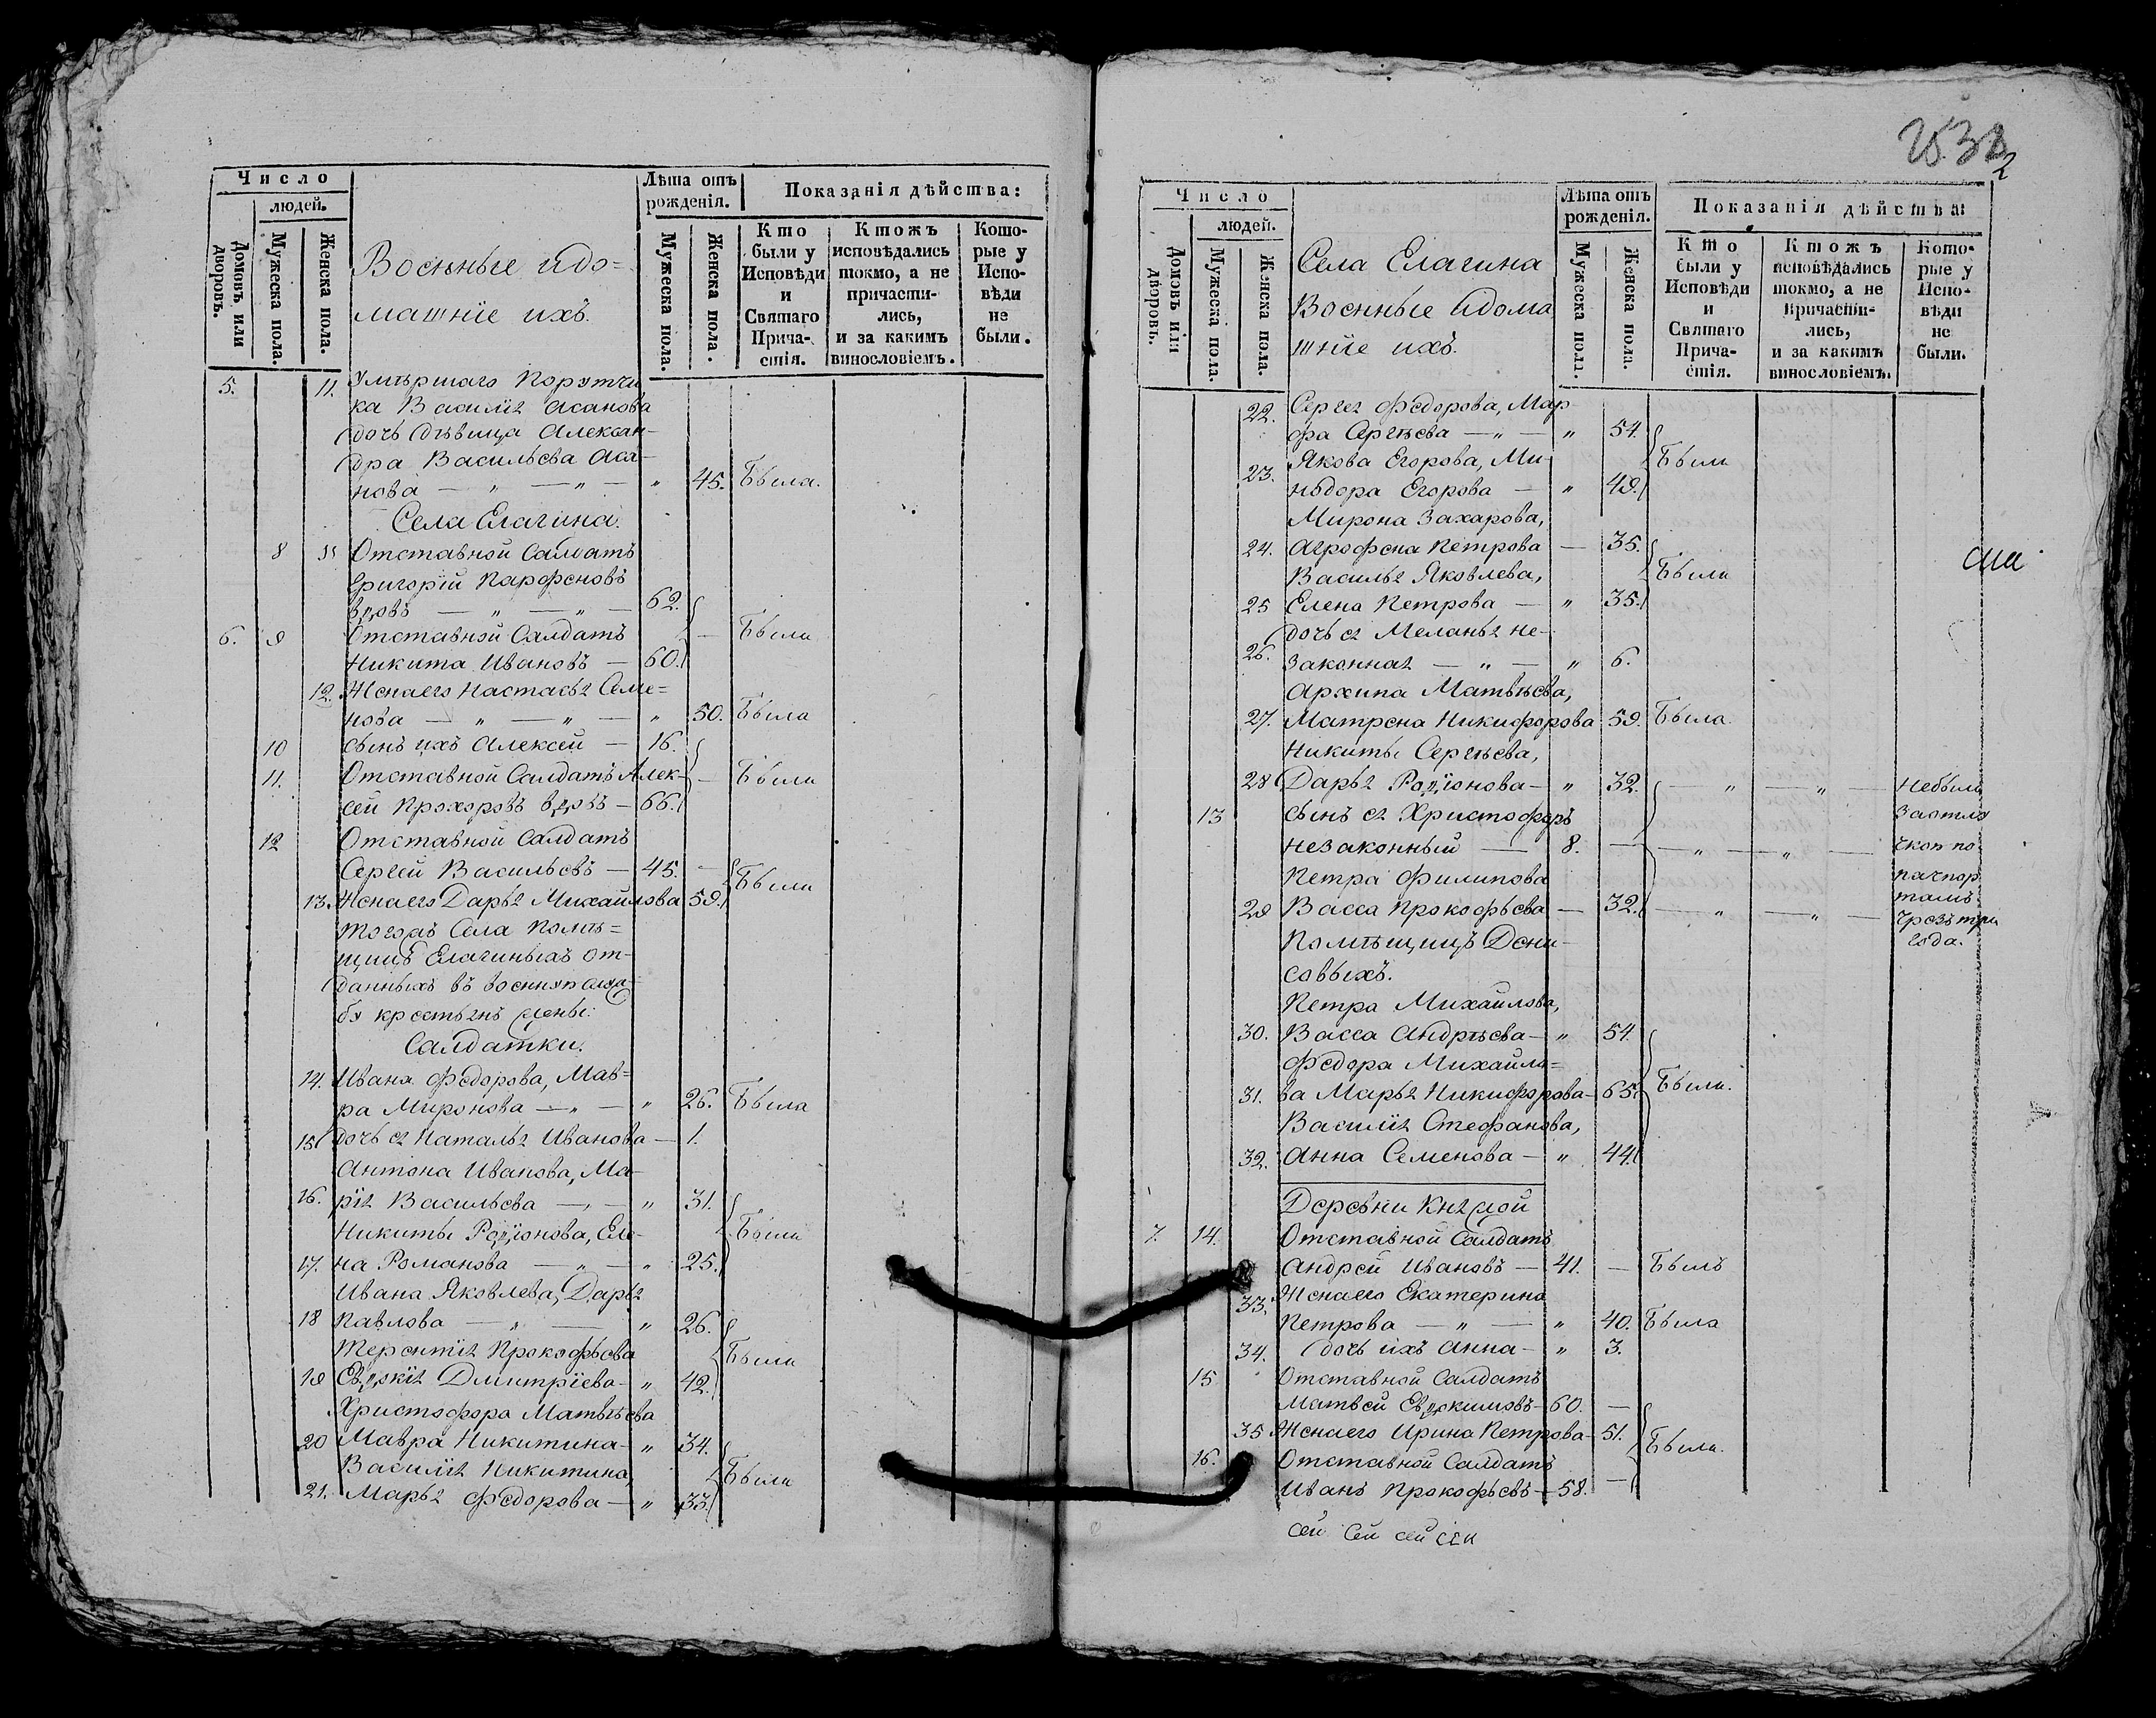 Число
людей.
Домовъ или дворовъ.
Мужеска пола.
Женска пола.
Военные и до=
машнїе ихъ.
Лѣта отъ рожденія.
Мужеска пола.
Женска пола.
Показанія дѣйства:
Кто были у Исповѣди и Святаго Причастія.
Ктожъ исповѣдались токмо, а не причастились, и за какимъ винословіемъ.
Которые у Исповѣди не были.
5. 11. Умѣршаго Порутчи
ка Василїя Асанова
дочь дѣвица Алексан-
дра Васильева Аса-
нова — " — " — " 45. Была.
Села Елагина.
8 Отставной Салдатъ
Григорїй Парфеновъ
вдовъ — " — " — 62.
6. 9 Отставной Салдатъ — Были
Никита Ивановъ — 60.
12. Жена его Настасья Семе=
нова — " — " — " 50. Была
10 сынъ ихъ Алексей — 16.
11. Отставной Салдатъ Алек- — Были
сей Прохоровъ вдовъ — 66.
12 Отставной Салдатъ
Сергей Васильевъ — 45. — Были
13. Жена его Дарья Михайлова 59.
Тогожъ Села помѣ=
щицъ Елагиныхъ от-
данныхъ въ военную служ
бу крестьянъ жены:
Салдатки.
14. Ивана Федорова, Мав=
ра Миронова — " — " 26. Была
15 дочь ея Наталья Иванова — 1.
Антона Иванова, Ма-
16. рїя Васильева — " — " 31.
Никиты Родїонова, Еле- Были
17. на Романова — " — " 25.
Ивана Яковлева, Дарья
18 Павлова — " — " 26.
Терентїя Прокофьева Были
19 Евдокїя Дмитрїева — " 42.
Христофора Матвѣева
20 Мавра Никитина — " 34.
Василїя Никитина, Были
21. Марья Федорова — " 33.
2
Число
людей.
Домовъ или дворовъ.
Мужеска пола.
Женска пола.
Села Елагина
Военные и дома
шнїе ихъ.
Лѣта отъ рожденія.
Мужеска пола.
Женска пола.
Показанія дѣйства:
Кто были у Исповѣди и Святаго Причастія.
Ктожъ исповѣдались токмо, а не причастились, и за какимъ винословіемъ.
Которые у Исповѣди не были.
22. Сергея Федорова, Мар
фа Сергѣева — " — " 54.
Якова Егорова, Ми- Были
23. нодора Егорова — " 49.
Мирона Захарова,
24. Агрофена Петрова — 35.
Василья Яковлева, Были
25 Елена Петрова — " 35.
дочь ея Меланья не-
26. законная — " — " 6.
Архипа Матвѣева,
27. Матрена Никифорова 59. Была
Никиты Сергѣева,
28 Дарья Родїонова — " 32. — " — " — Небыли
13 сынъ ея Христофоръ Заотлу
незаконный — 8. — " — " — чкоп по
Петра Филипова пачпор
29 Васса Прокофьева — 32. — " — " — тамъ.
чрезъ три
Помѣщицъ Дени- года.
совыхъ.
Петра Михайлова,
30. Васса Андрѣева — " 54.
Федора Михайло=
31. ва Марья Никифорова — 65. Были.
Василїя Стефанова,
32. Анна Семенова — " 44.
Деревни Княжой
7. 14. Отставной Салдатъ
Андрей Ивановъ — 41. — Былъ
33. Жена его Екатерина
Петрова — " — " 40. Была
34. дочь ихъ Анна — " 3.
15 Отставной Салдатъ
Матвей Евдокимовъ — 60. —
35 Жена его Ирина Петрова — 51. Были.
16. Отставной Салдатъ
Иванъ Прокофьевъ — 58. —
сей сей сей